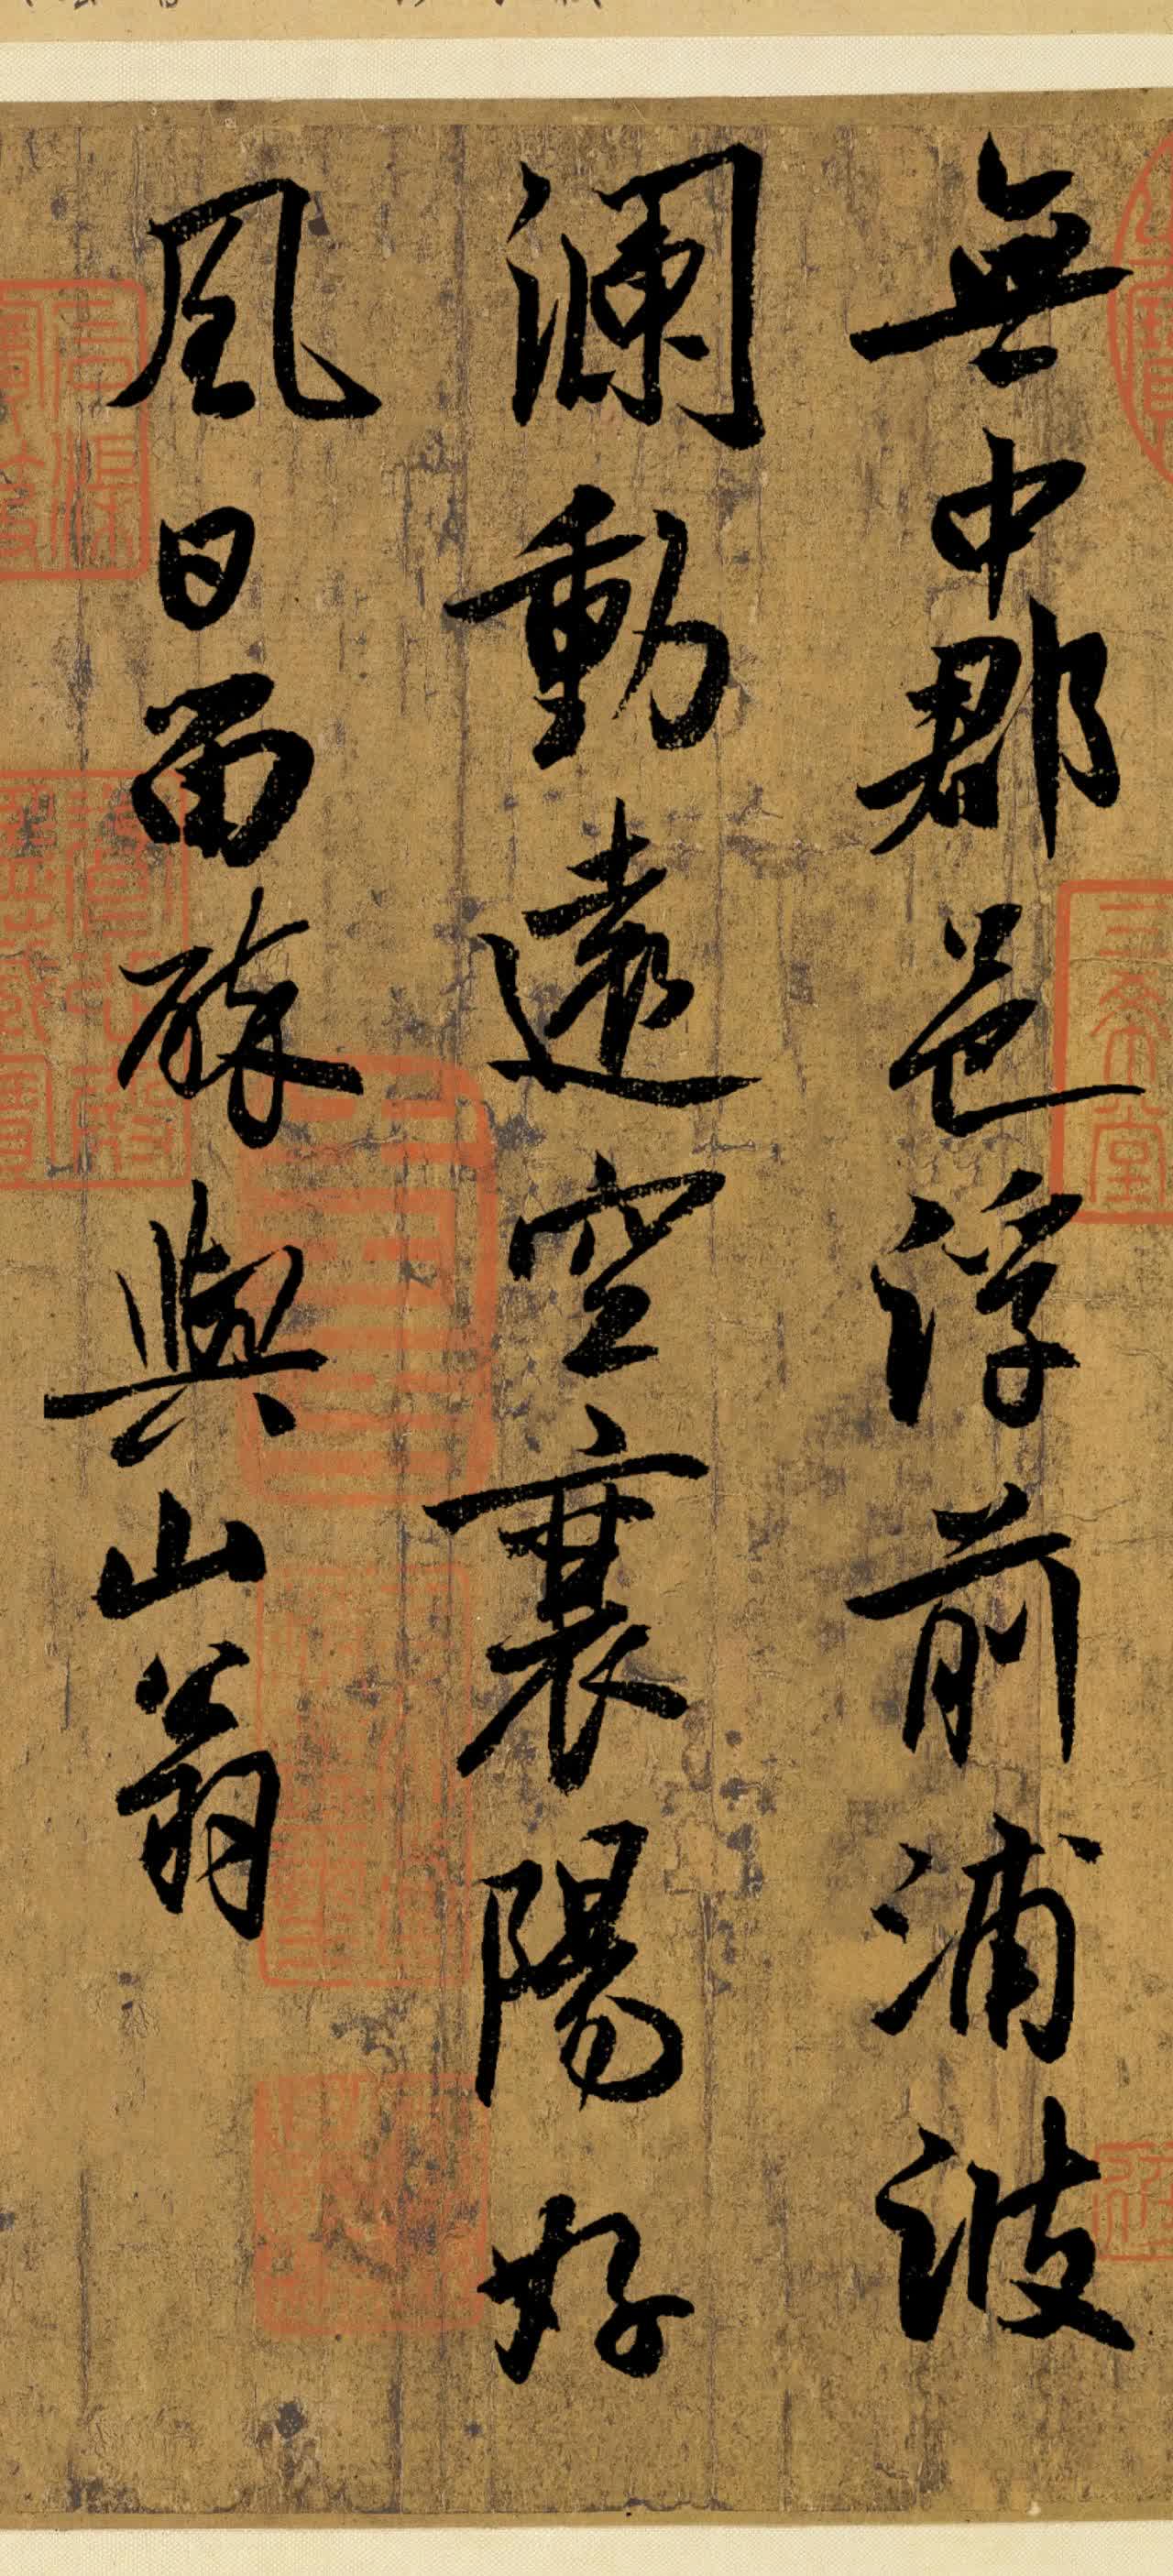 無中郡邑浮前浦波
瀾動遠空襄陽好
風日留醉與山翁
三希堂